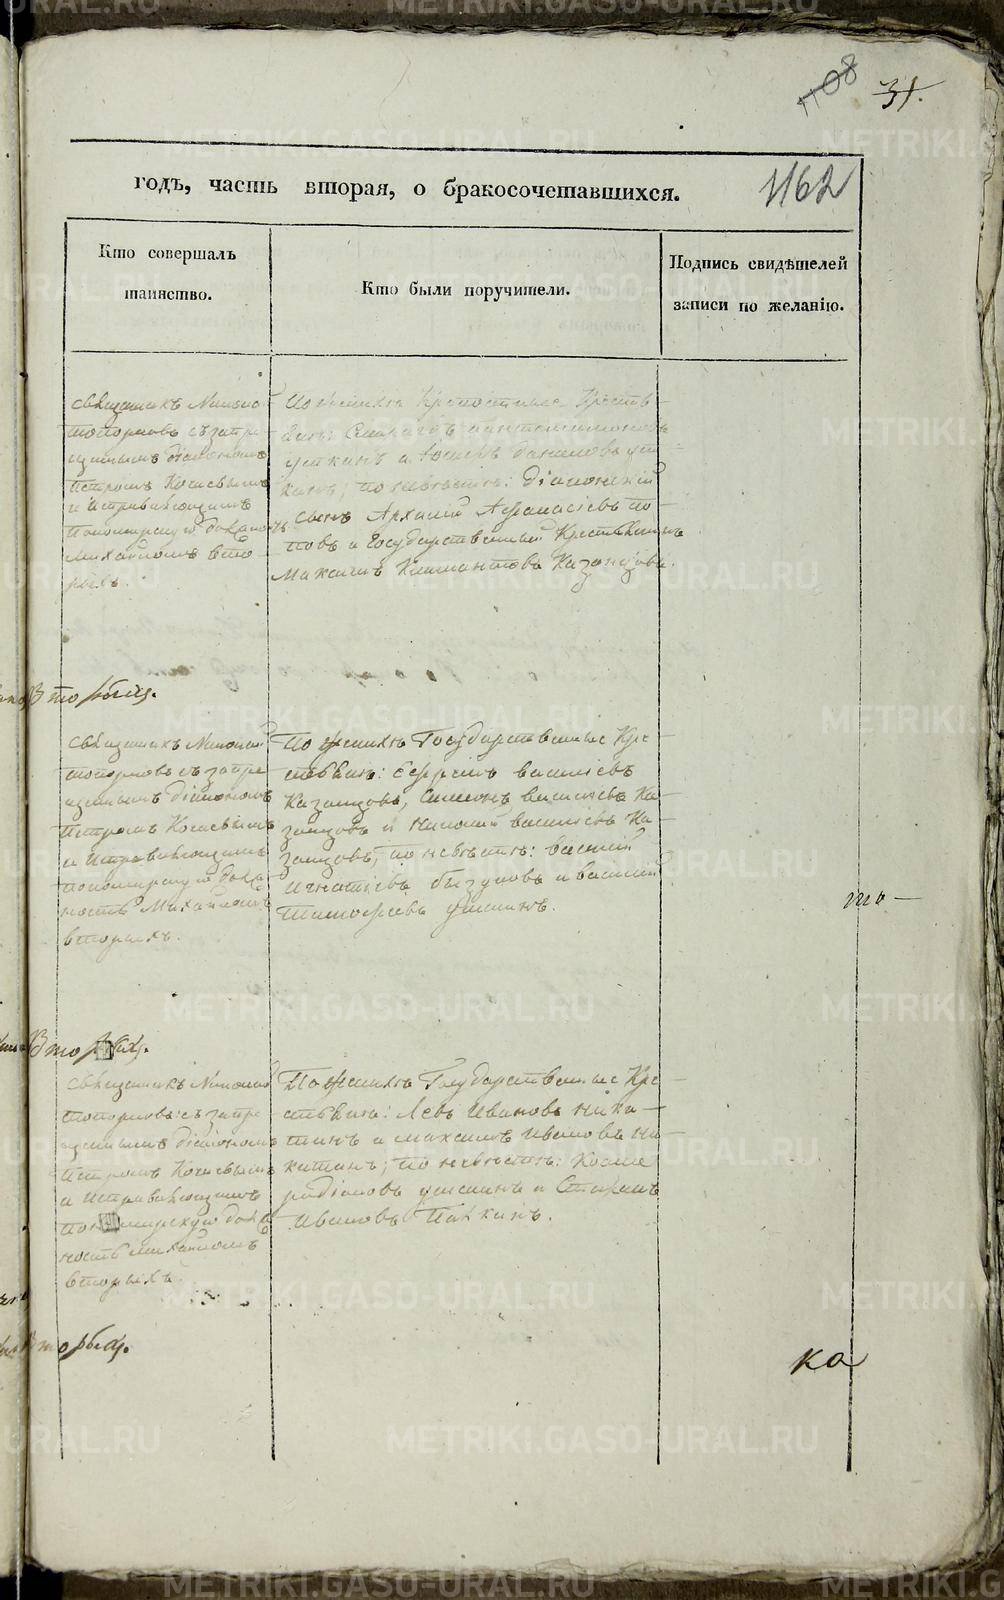 1108
31.
годъ, часть вторая, о бракосочетавшихся.
1162
Кто совершалъ
таинство.
Кто были поручители.
Подпись свидѣтелей
записи по желанію.
священникъ Николай
топорковъ съ запре
щеннымъ діакономъ
Петромъ
и исправляющимъ
пономарскую должность
Михайломъ вто
рыхъ.
По женихѣ Крепостные Кресть-
яне:
усткинъ и
кинъ; по невѣстѣ: діаконскій
сынъ Архипъ Афанасіевъ по-
повъ и Государственный Крестьянинъ
Максимъ Климантовъ Казанцовъ.
Вторыхъ.
священникъ Николай
топорковъ съ запре
щеннымъ діакономъ
Петромъ
и исправляющимъ
пономарскую долж
ность Михайломъ
вторыхъ.
По женихѣ Государственные Кре-
стьяне: Ефремъ василіевъ
Казанцовъ, Симеонъ василіевъ Ка-
занцовъ и Николай василіевъ Ка-
занцовъ; по невѣстѣ: василій
Игнатіевъ и василій
Тимофеевъ
то-
Вторыхъ.
священникъ Николай
топорковъ съ запре
щеннымъ діакономъ
Петромъ
и исправляющимъ
пономарскую долж
ность михайломъ
вторыхъ.
По женихѣ Государственные Кре-
стьяне: Левъ Ивановъ Ники-
тинъ и максимъ Ивановъ Ни-
китинъ; по невѣстѣ: Козма
родіоновъ и
Ивановъ
Вторыхъ.
ка
METRIKI.GASO-URAL.RU